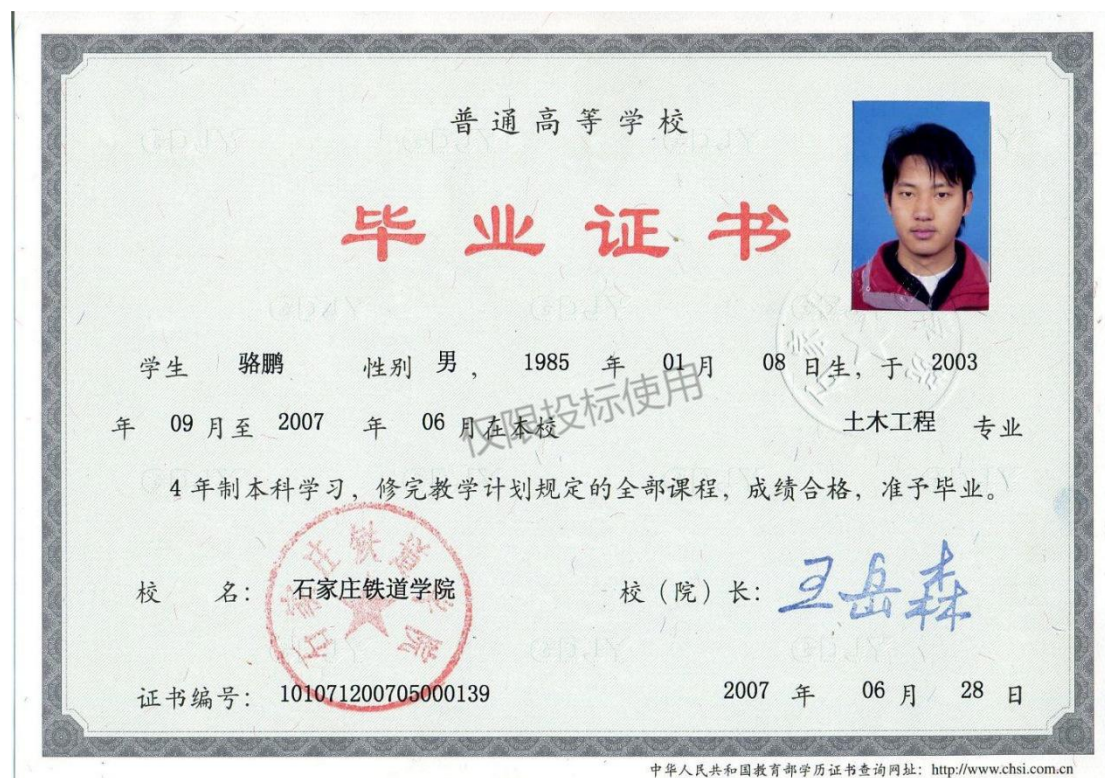 普通高等学校
毕业证书
学生 骆鹏 性别 男 ， 1985 年 01 月 08 日生，于 2003
年 09 月至 2007 年 06 月在本校 土木工程 专业
仅限投标使用
4 年制本科学习，修完教学计划规定的全部课程，成绩合格，准予毕业。
石家庄铁道学院
校 名： 石家庄铁道学院 校（院）长： 王岳森
证书编号： 101071200705000139 2007 年 06 月 28 日
中华人民共和国教育部学历证书查询网址：http://www.chsi.com.cn